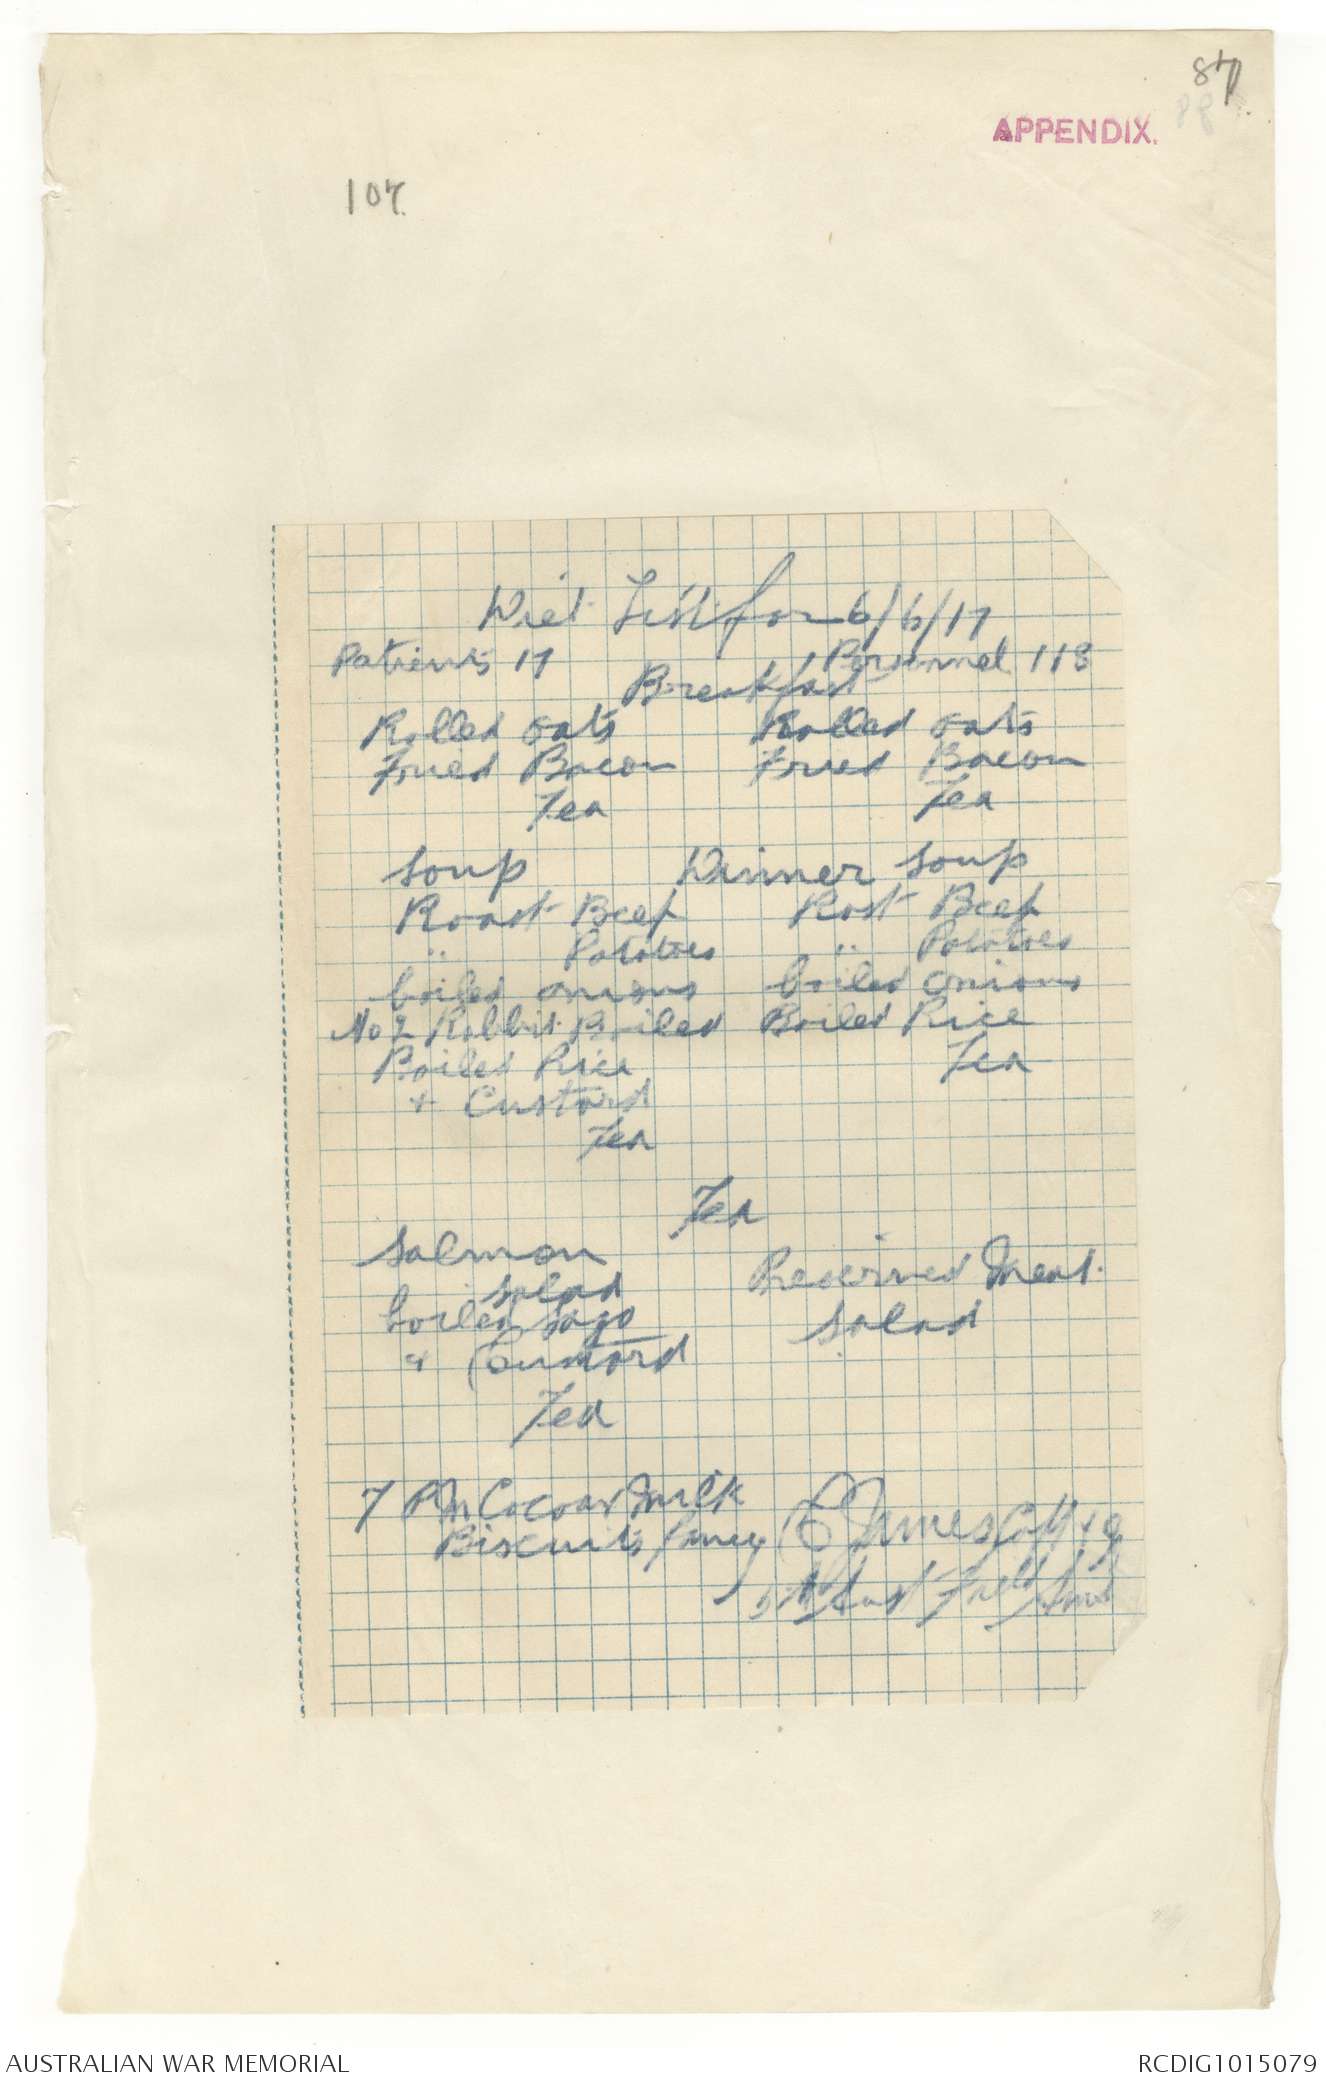 87
APPENDIX.
107
Diet List for 6/6/17
Patients 17 Personnel 118
Breakfast
Rolled oats Rolled oats
Fried Bacon Fried Bacon
Tea Tea
Soup Dinner Soup
Roast Beef Rost Beef
" Potatoes " Potatoes
boiled onions boiled onions
No 2 Rabbit Boiled Boiled Rice
Boiled Rice Tea
+ Custard
Tea
Tea
Salmon Preserved Meat
Salad Salad
boiled sago
+ Custard
Tea
7 PM Cocoa Milk
Biscuits fancy James
5th Aust Field Amb
AUSTRALIAN WAR MEMORIAL RCDIG1015079